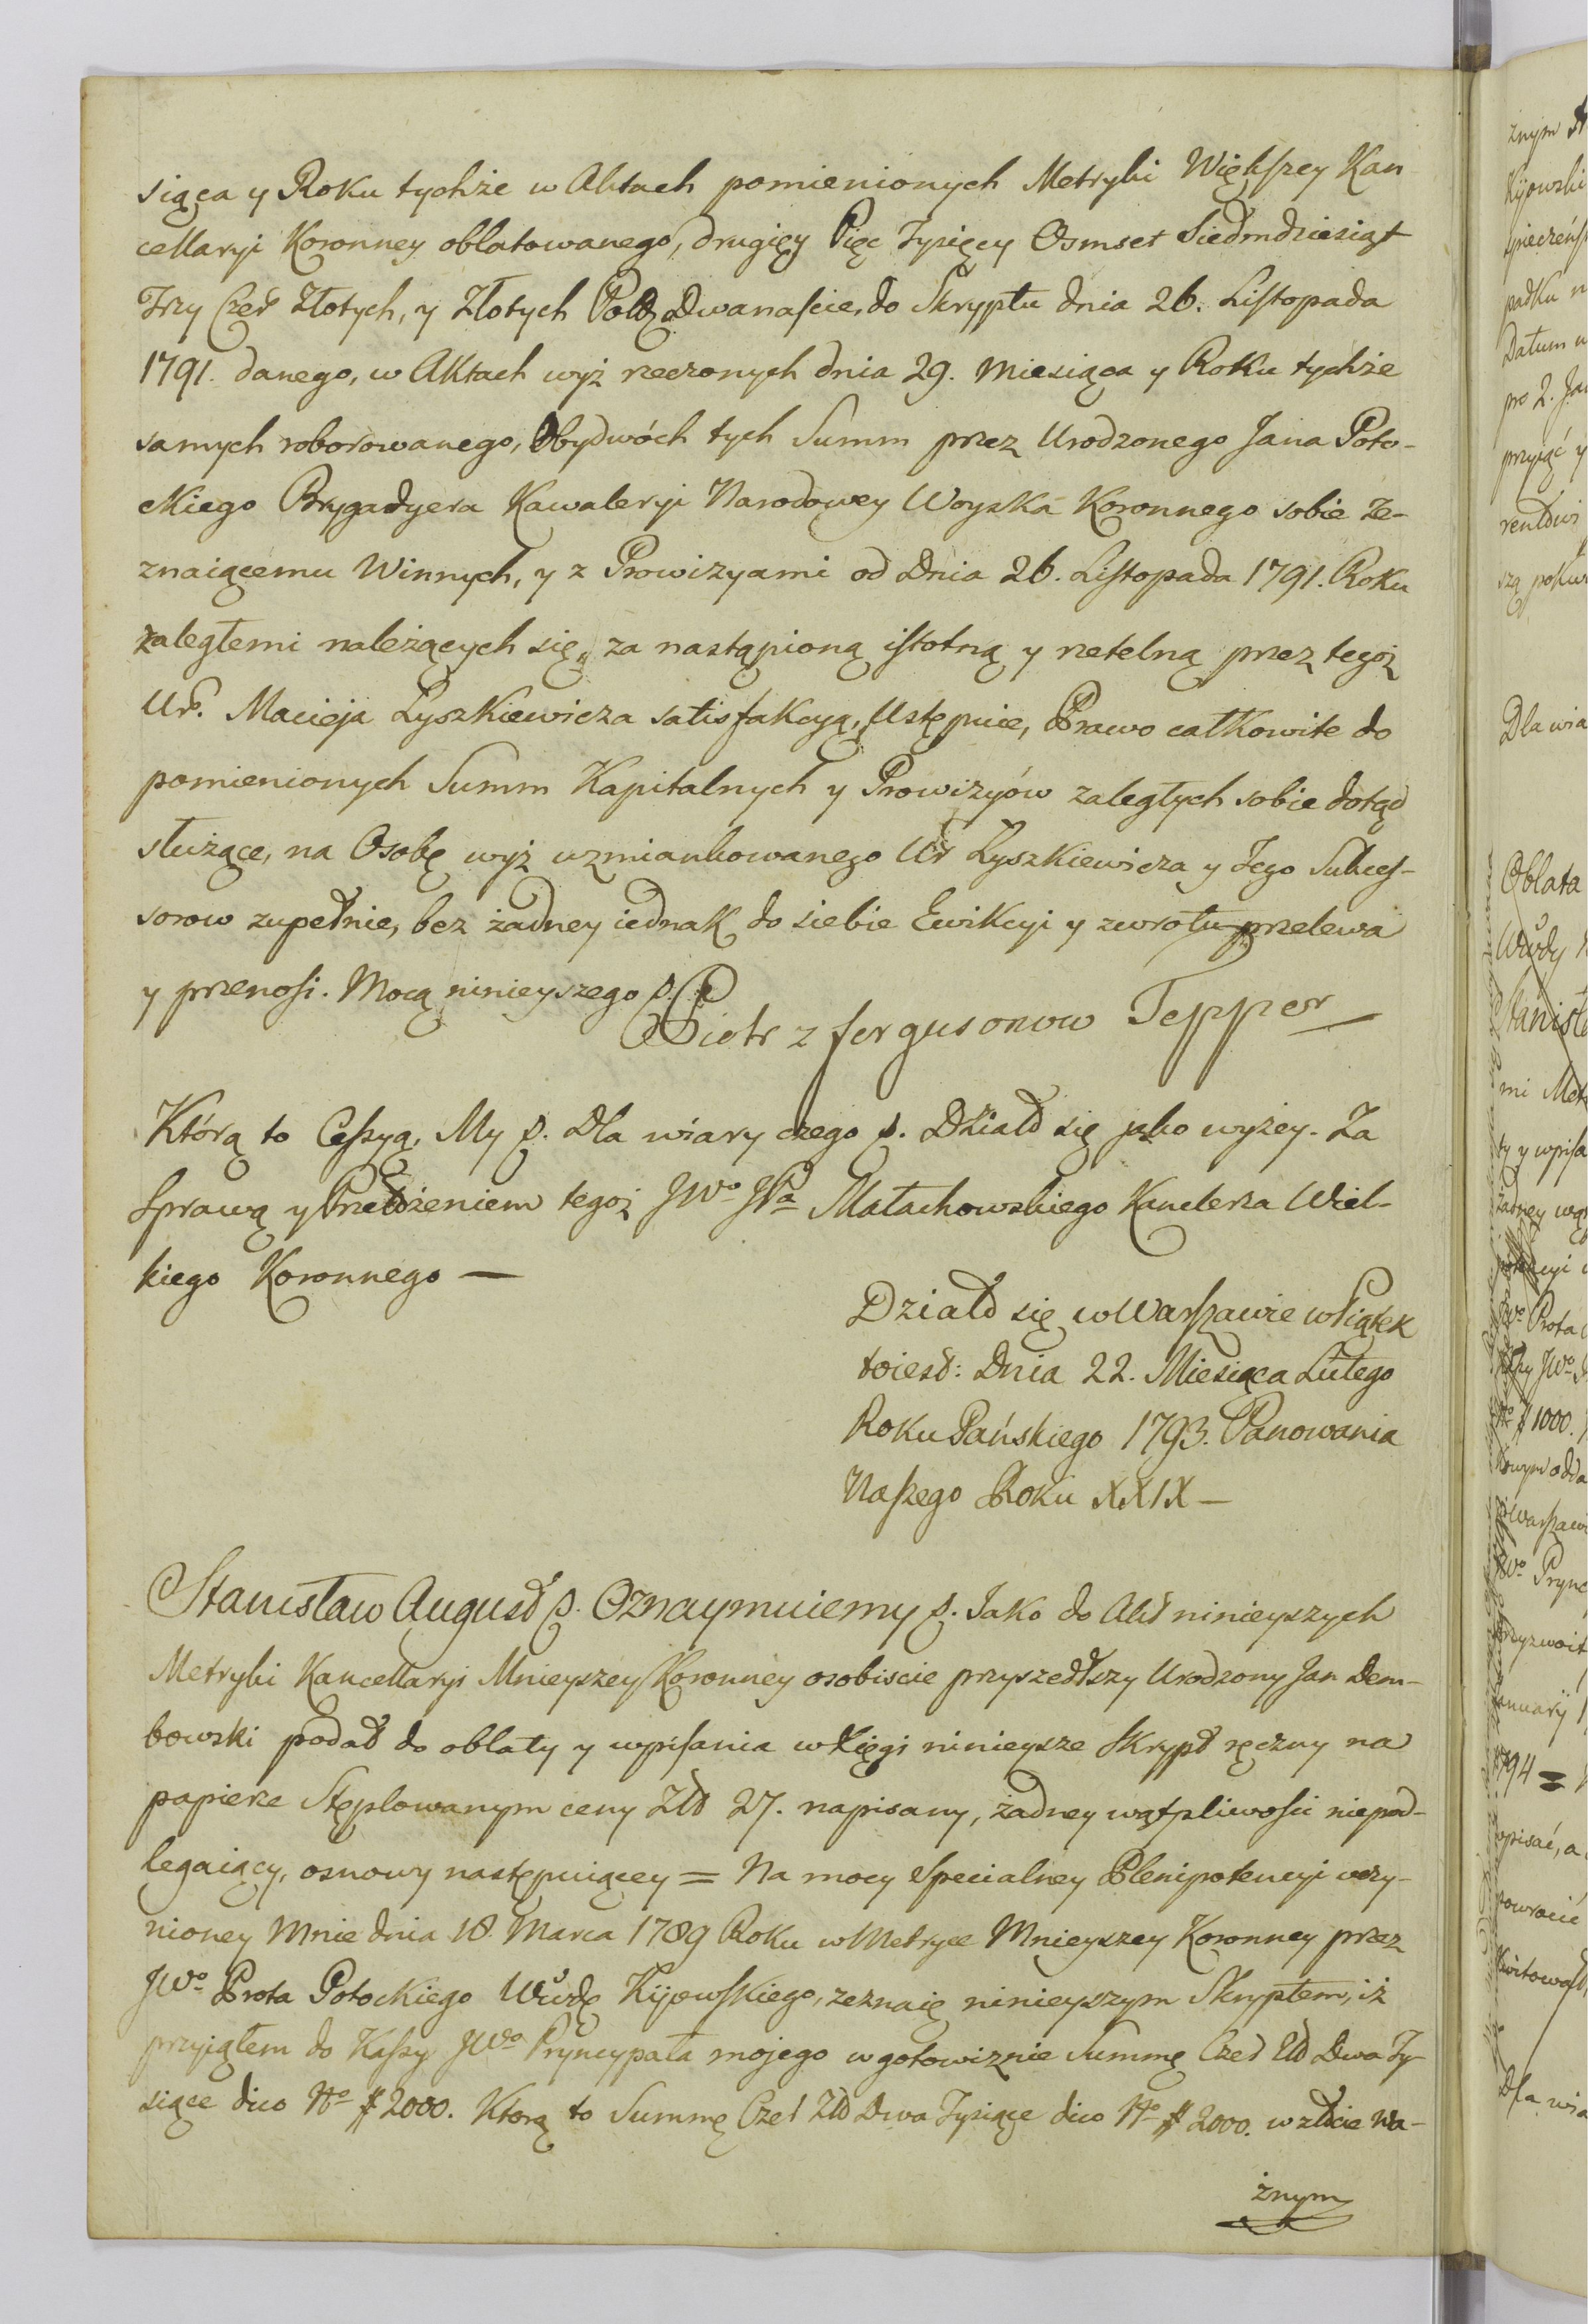 siąca y Roku tychże w Aktach pomienionych Metryki Większey Kan
cellaryi Koronney oblatowanego, drugiey Pięc Tysięcy Osmset Siedmdziesiąt
Trzy Czer Złotych, y Złotych Pols Dwanaście, do Skryptu dnia 26. Listopada
1791. danego, w Aktach wyż rzeczonych dnia 29. Miesiąca y Roku tychże
samych roborowanego, Obydwóch tych Summ przez Urodzonego Jana Poto-
ckiego Brygadyera Kawaleryi Narodowey Woyska Koronnego sobie ze-
znaiącemu Winnych, y z Prowizyami od Dnia 26. Listopada 1791. Roku
zaległemi należących się, za nastąpioną istotną y rzetelną przez tegoż
Ur. Macieja Lyszkiewicza satisfakcyą, Ustępuie, Prawo całkowite do
pomienionych Summ Kapitalnych y Prowizyów zaległych sobie dotąd
służące, na Osobę wyż uzmiankowanego Ur Lyszkiewicza y Jego Sukces-
sorow zupełnie, bez żadney iednak do siebie Ewikcyi y zwrotu przelewa
y przenosi. Mocą ninieyszego p.
Piotr z fergusonow Tepper
Którą to Cessyą, My p. Dla wiary czego p. Działo się jako wyżey. Za
Sprawą y Przełożeniem tegoż JWo JPa Małachowskiego Kanclerza Wiel-
kiego Koronnego —
Działo się w Warszawie w Piątek
to iest: Dnia 22. Miesiąca Lutego
Roku Pańskiego 1793. Panowania
Naszego Roku XXIX —
Stanisław August p. Oznaymuiemy p. Jako do Akt ninieyszych
Metryki Kancellaryi Mnieyszey Koronney osobiscie przyszedłszy Urodzony Jan Dem-
bowski podał do oblaty y wpisania w Xięgi ninieysze Skrypt ręczny na
papierze Stęplowanym ceny Zło 27. napisany, żadney wątpliwości niepod-
legaiący, osnowy następuiącey = Na mocy Specialney Plenipotencyi uczy-
nioney Mnie dnia 18. Marca 1789 Roku w Metryce Mnieyszey Koronney przez
JWo Prota Potockiego Wwdę Kijowskiego, zeznaię ninieyszym Skryptem, iż
przyiąłem do Kassy JWo Pryncypała mojego w gotowiznie Summę Czer Zło Dwa Ty-
siące dico No # 2000. Którą to Summę Czer Zło Dwa Tysiące dico No # 2000. w złocie wa-
żnym